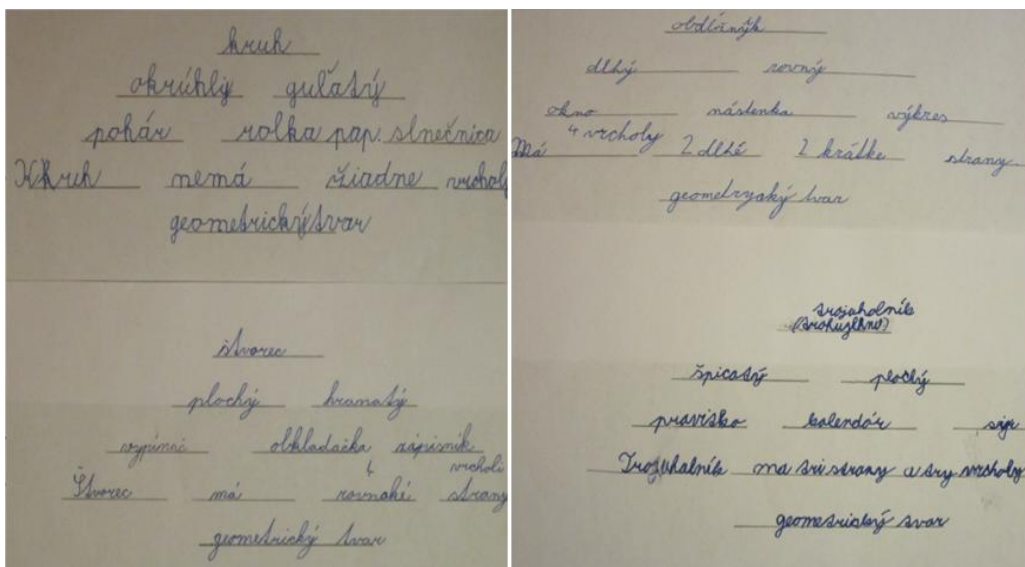 kruh
okrúhly guľatý
pohár rolka pap. slnečnica
Kruh nemá žiadne vrcholy
geometrický tvar
štvorec
plochý hranatý
vypínač obkladačka zápisník
4 vrcholi
Štvorec má rovnaké strany
geometrický tvar
obdĺžnyk
dlhý rovný
okno nástenka výkres
4 vrcholy
Má 2 dlhé 2 krátke strany
geometrycký tvar
trojuholník
špicatý plochý
pravítko kalendár syr
Trojuholník ma tri strany a try vrcholy
geometrický tvar